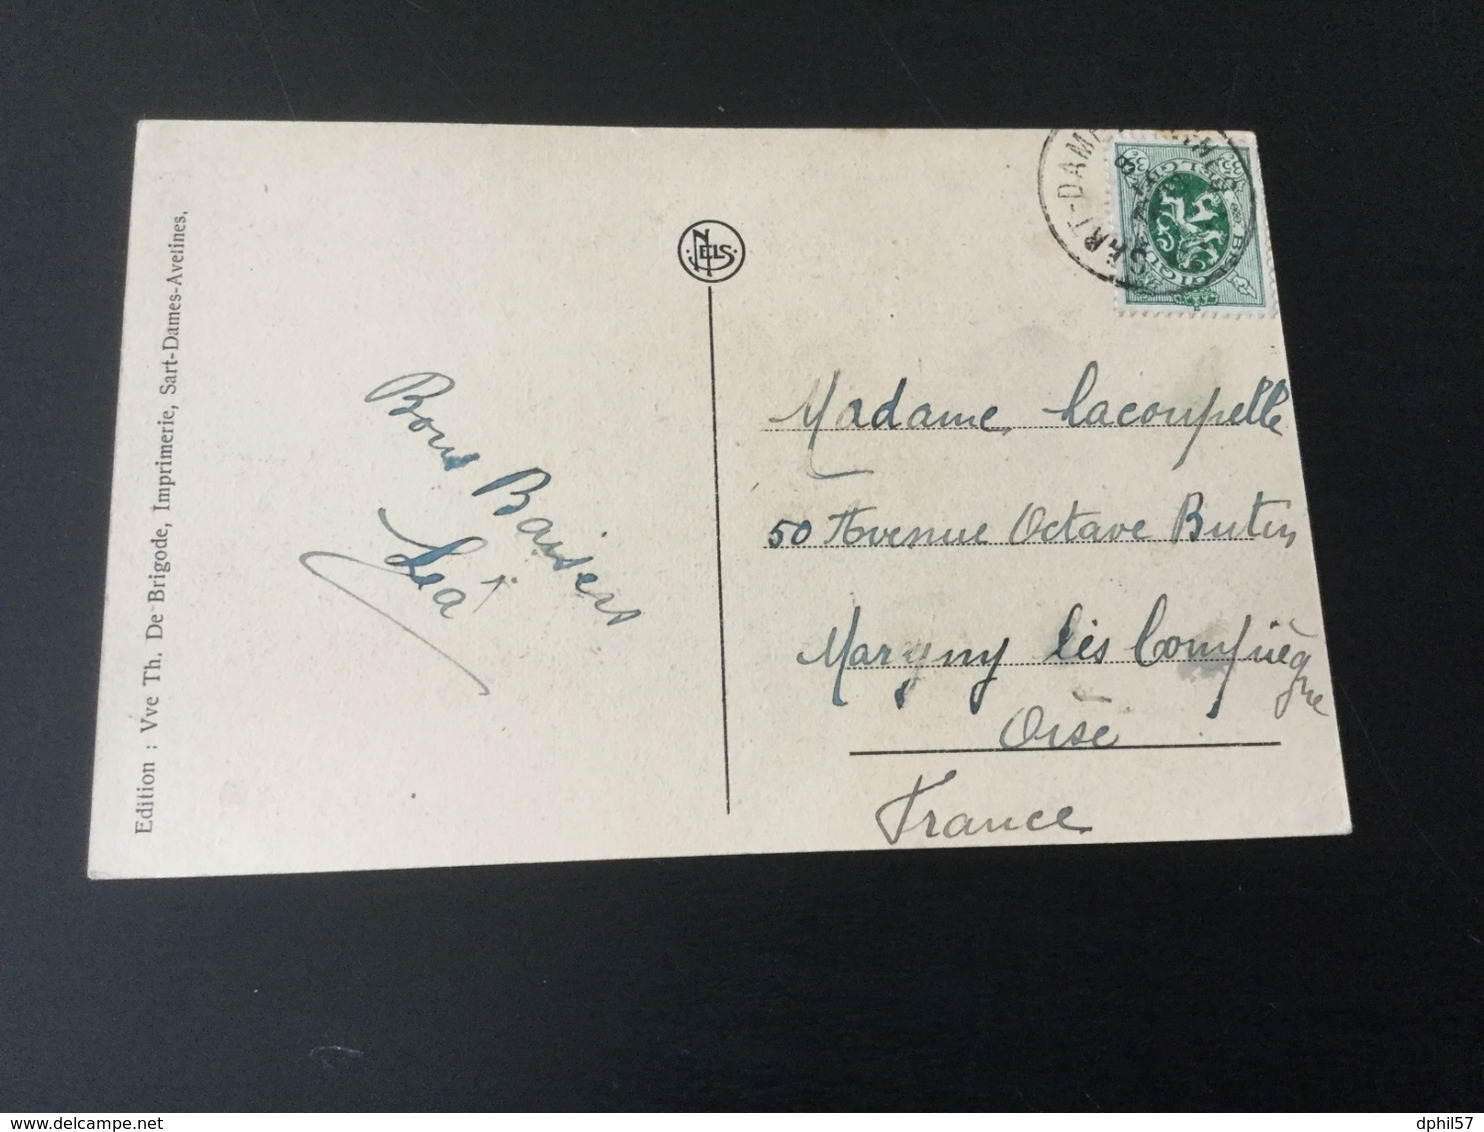 Edition : Vve Th. De Brigode, Imprimerie, Sart-Dames-Avelines,
NELS
BELGIQUE BELGIE
Bons Baisers
Léa
Madame Lacoupelle
50 Avenue Octave Butin
Margny lès Compiègne
Oise
France
delcampe.net
dphil57